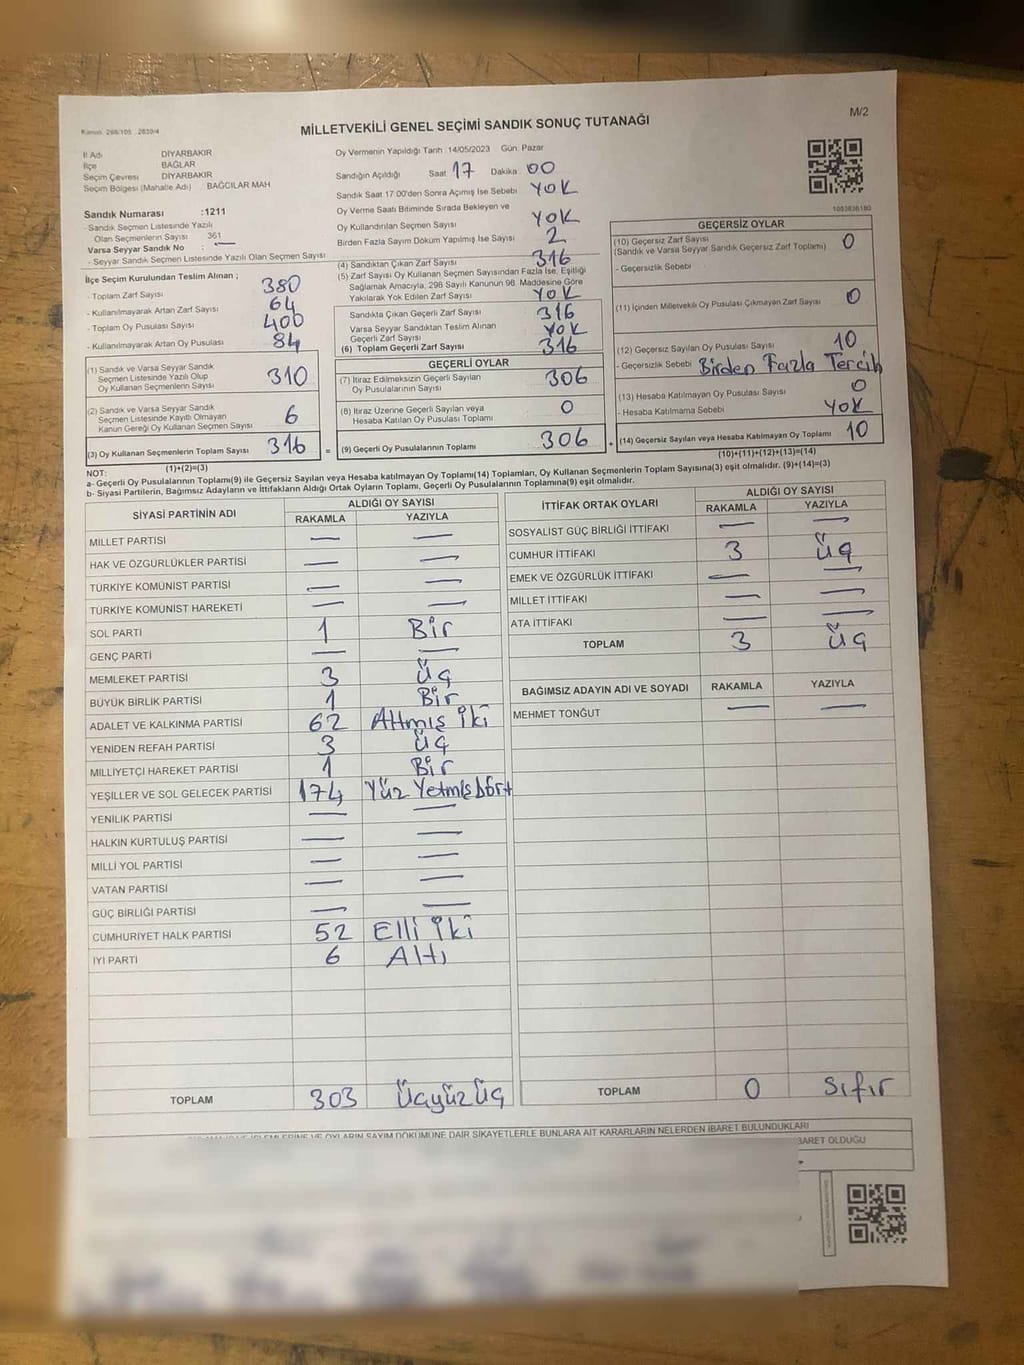 Kanun: 298/105 2839/4
MİLLETVEKİLİ GENEL SEÇİMİ SANDIK SONUÇ TUTANAĞI
M/2
İl Adı DİYARBAKIR
İlçe BAĞLAR
Seçim Çevresi DİYARBAKIR
Seçim Bölgesi (Mahalle Adı) BAĞCILAR MAH
Sandık Numarası :1211
- Sandık Seçmen Listesinde Yazılı
Olan Seçmenlerin Sayısı 361
Varsa Seyyar Sandık No : —
- Seyyar Sandık Seçmen Listesinde Yazılı Olan Seçmen Sayısı
İlçe Seçim Kurulundan Teslim Alınan ;
- Toplam Zarf Sayısı 380
- Kullanılmayarak Artan Zarf Sayısı 64
- Toplam Oy Pusulası Sayısı 400
- Kullanılmayarak Artan Oy Pusulası 84
(1) Sandık ve Varsa Seyyar Sandık
Seçmen Listesinde Yazılı Olup
Oy Kullanan Seçmenlerin Sayısı 310
(2) Sandık ve Varsa Seyyar Sandık
Seçmen Listesinde Kayıtlı Olmayan
Kanun Gereği Oy Kullanan Seçmen Sayısı 6
(3) Oy Kullanan Seçmenlerin Toplam Sayısı 316 =
(1)+(2)=(3)
Oy Vermenin Yapıldığı Tarih 14/05/2023 Gün Pazar
Sandığın Açıldığı Saat 17 Dakika 00
Sandık Saat 17:00'den Sonra Açımış İse Sebebi YOK
Oy Verme Saati Bitiminde Sırada Bekleyen ve
Oy Kullandırılan Seçmen Sayısı YOK
Birden Fazla Sayım Döküm Yapılmış İse Sayısı 2
(4) Sandıktan Çıkan Zarf Sayısı 316
(5) Zarf Sayısı Oy Kullanan Seçmen Sayısından Fazla İse, Eşitliği
Sağlamak Amacıyla, 298 Sayılı Kanunun 98. Maddesine Göre
Yakılarak Yok Edilen Zarf Sayısı YOK
Sandıkta Çıkan Geçerli Zarf Sayısı 316
Varsa Seyyar Sandıktan Teslim Alınan
Geçerli Zarf Sayısı YOK
(6) Toplam Geçerli Zarf Sayısı 316
GEÇERLİ OYLAR
(7) İtiraz Edilmeksizin Geçerli Sayılan
Oy Pusulalarının Sayısı 306
(8) İtiraz Üzerine Geçerli Sayılan veya
Hesaba Katılan Oy Pusulası Toplamı 0
(9) Geçerli Oy Pusulalarının Toplamı 306 +
1003836180
GEÇERSİZ OYLAR
(10) Geçersiz Zarf Sayısı 0
(Sandık ve Varsa Seyyar Sandık Geçersiz Zarf Toplamı)
- Geçersizlik Sebebi
(11) İçinden Milletvekili Oy Pusulası Çıkmayan Zarf Sayısı 0
(12) Geçersiz Sayılan Oy Pusulası Sayısı 10
- Geçersizlik Sebebi Birden Fazla Tercih
(13) Hesaba Katılmayan Oy Pusulası Sayısı 0
- Hesaba Katılmama Sebebi YOK
(14) Geçersiz Sayılan veya Hesaba Katılmayan Oy Toplamı 10
(10)+(11)+(12)+(13)=(14)
NOT:
a- Geçerli Oy Pusulalarının Toplamı(9) ile Geçersiz Sayılan veya Hesaba katılmayan Oy Toplamı(14) Toplamları, Oy Kullanan Seçmenlerin Toplam Sayısına(3) eşit olmalıdır. (9)+(14)=(3)
b- Siyasi Partilerin, Bağımsız Adayların ve İttifakların Aldığı Ortak Oyların Toplamı, Geçerli Oy Pusulalarının Toplamına(9) eşit olmalıdır.
SİYASİ PARTİNİN ADI ALDIĞI OY SAYISI
RAKAMLA YAZIYLA
MİLLET PARTİSİ — —
HAK VE ÖZGÜRLÜKLER PARTİSİ — —
TÜRKİYE KOMÜNİST PARTİSİ — —
TÜRKİYE KOMÜNİST HAREKETİ — —
SOL PARTİ 1 Bir
GENÇ PARTİ — —
MEMLEKET PARTİSİ 3 Üç
BÜYÜK BİRLİK PARTİSİ 1 Bir
ADALET VE KALKINMA PARTİSİ 62 Altmış İki
YENİDEN REFAH PARTİSİ 3 Üç
MİLLİYETÇİ HAREKET PARTİSİ 1 Bir
YEŞİLLER VE SOL GELECEK PARTİSİ 174 Yüz Yetmiş Dört
YENİLİK PARTİSİ — —
HALKIN KURTULUŞ PARTİSİ — —
MİLLİ YOL PARTİSİ — —
VATAN PARTİSİ — —
GÜÇ BİRLİĞİ PARTİSİ — —
CUMHURİYET HALK PARTİSİ 52 Elli İki
İYİ PARTİ 6 Altı
TOPLAM 303 Üçyüz Üç
İTTİFAK ORTAK OYLARI ALDIĞI OY SAYISI
RAKAMLA YAZIYLA
SOSYALİST GÜÇ BİRLİĞİ İTTİFAKI — —
CUMHUR İTTİFAKI 3 Üç
EMEK VE ÖZGÜRLÜK İTTİFAKI — —
MİLLET İTTİFAKI — —
ATA İTTİFAKI — —
TOPLAM 3 Üç
BAĞIMSIZ ADAYIN ADI VE SOYADI RAKAMLA YAZIYLA
MEHMET TONĞUT — —
TOPLAM 0 Sıfır
OYLARIN SAYIM DÖKÜMÜNE DAİR ŞİKAYETLERLE BUNLARA AİT KARARLARIN NELERDEN İBARET BULUNDUKLARI
BARET OLDUĞU